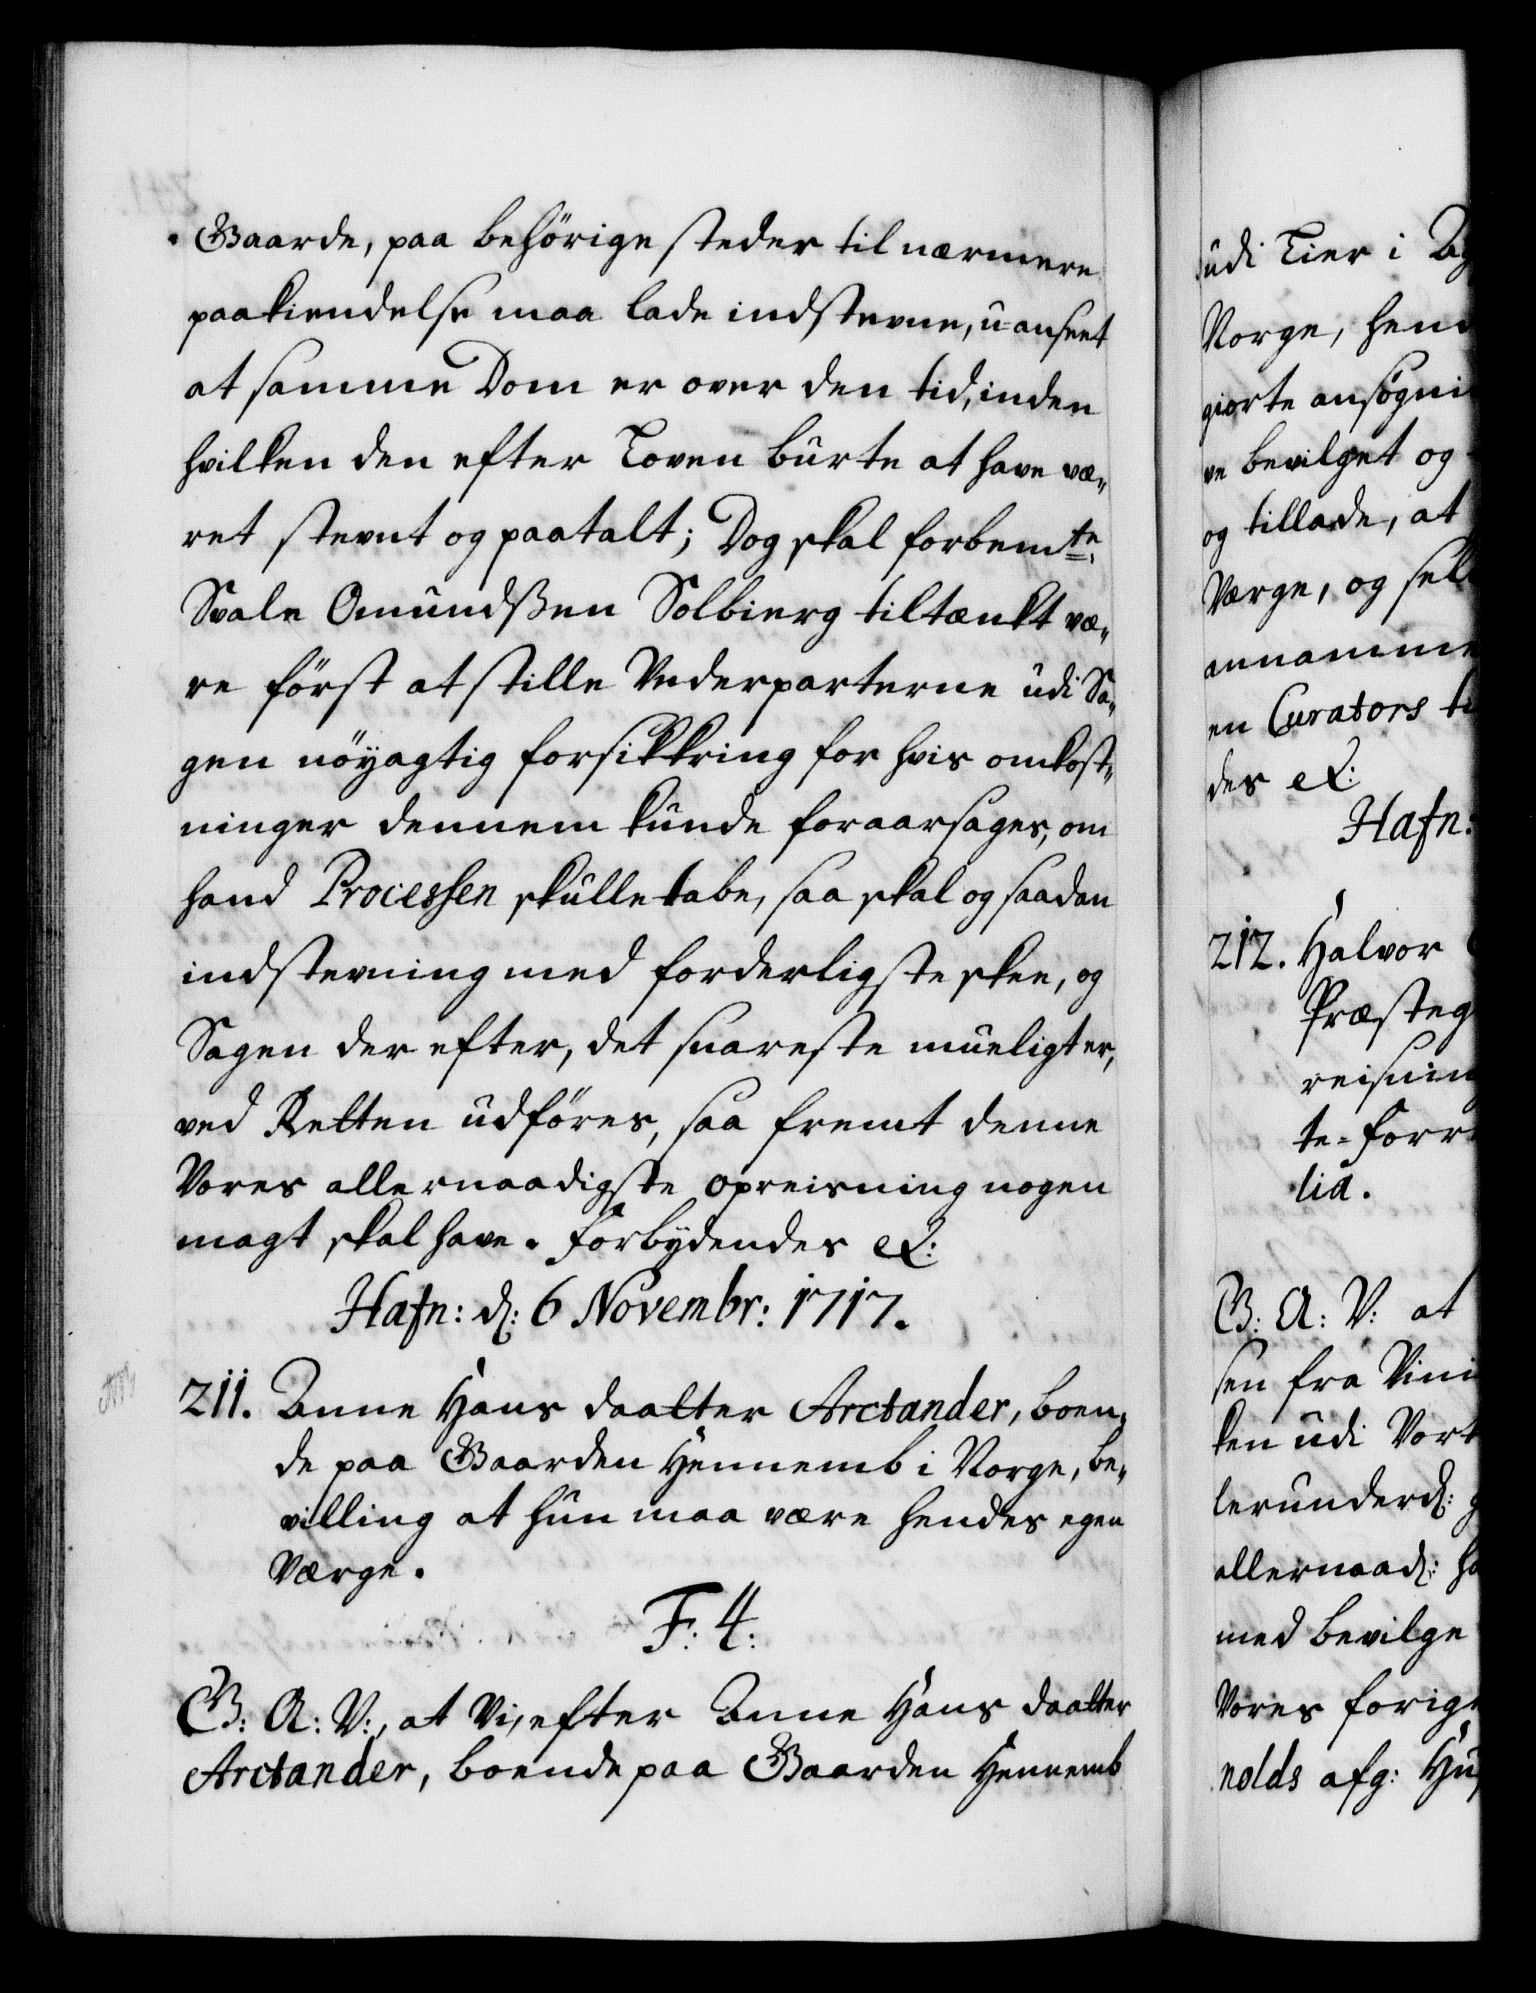 Gaarde, paa behörige steder til nærmere
paakiendelse maa lade indstevne, u=anseet
at samme Dom er over den tid, inden
hvilken den efter Loven burte at have væ„
ret stevnt og paatalt; Dog skal forbemte:
Svale Omundßen Solbierg tiltænkt væ„
re först at stille Vederparterne udi Sa„
gen nöyagtig forsikkring for hvis omkost„
ninger dennem kunde foraarsages, om
hand Processen skulle tabe, saa skal og saadan
indstevning med forderligste skee, og
Sagen der efter, det snareste mueligt er,
ved Retten udföres, saa fremt denne
Vores allernaadigste opreisning nogen
magt skal have. Forbydendes etc:
Hafn: d: 6 Novembr: 1717.
211. Anne Hans daatter Arctander, boen„
de paa Gaarden Hennemb i Norge, be„
villing at hun maa være hendes egen
Værge.
F: 4:
G: A: V:, at Vi, efter Anne Hans daatter
Arctander, boende paa Gaarden Hennemb
udi Lier i
Norge,
giorte
ve bevilget og
og tillade, at
Værge, og
annamme
en Curators
des etc:
Hafn:
212. Halvor
te=
lid.
G: A: V: at
sen fra
ken udi
lerunderd:
allernaad:
med bevilge
Vores
nolds afg: